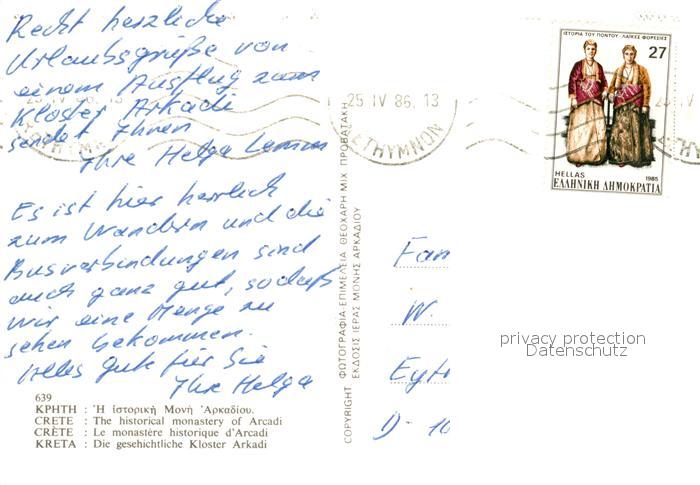 Recht herzliche
Urlaubsgrüße von
einem Ausflug zum
Kloster Arkadi
sendet Ihnen
Ihre Helga
Es ist hier herrlich
zum Wandern und die
Busverbindungen sind
auch ganz gut, sodaß
wir eine Menge zu
sehen bekommen.
Alles gute für Sie
Ihre Helga
639
ΚΡΗΤΗ : Ἡ ἱστορικὴ Μονὴ Ἀρκαδίου.
CRETE : The historical monastery of Arcadi
CRÈTE : Le monastère historique d'Arcadi
KRETA : Die gesehichtliche Kloster Arkadi
COPYRIGHT ΦΩΤΟΓΡΑΦΙΑ ΕΠΙΜΕΛΕΙΑ ΘΕΟΧΑΡΗ ΜΙΧ ΠΡΟΒΑΤΑΚΗ
ΕΚΔΟΣΙΣ ΙΕΡΑΣ ΜΟΝΗΣ ΑΡΚΑΔΙΟΥ
25 IV 86. 13
ΡΕΤΗΥΜΝΟΝ
ΙΣΤΟΡΙΑ ΤΟΥ ΠΟΝΤΟΥ - ΛΑΪΚΕΣ ΦΟΡΕΣΙΕΣ
27
HELLAS 1985
ΕΛΛΗΝΙΚΗ ΔΗΜΟΚΡΑΤΙΑ
Fam
W.
Eyt
D- 10
privacy protection
Datenschutz